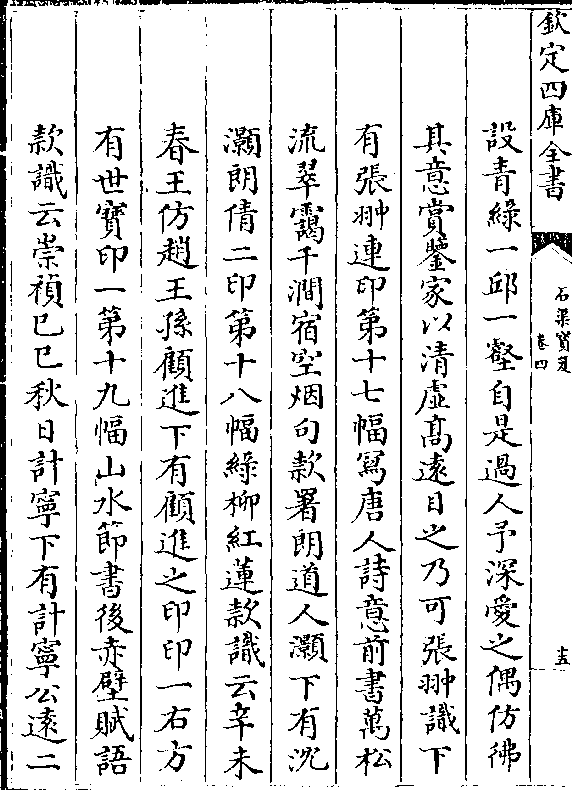 欽定四庫全書
石渠寶笈
卷四
十五
設青綠一邱一壑自是過人予深愛之偶仿彿
其意賞鑒家以清虛髙遠目之乃可張翀識下
有張翀連印第十七幅寫唐人詩意前書萬松
流翠靄千澗宿空烟句款署朗道人灝下有沈
灝朗倩二印第十八幅綠柳紅蓮款識云辛未
春王仿趙王孫顧進下有顧進之印印一右方
有世寳印一第十九幅山水節書後赤壁賦語
款識云崇禎己巳秋日計寧下有計寧公遠二